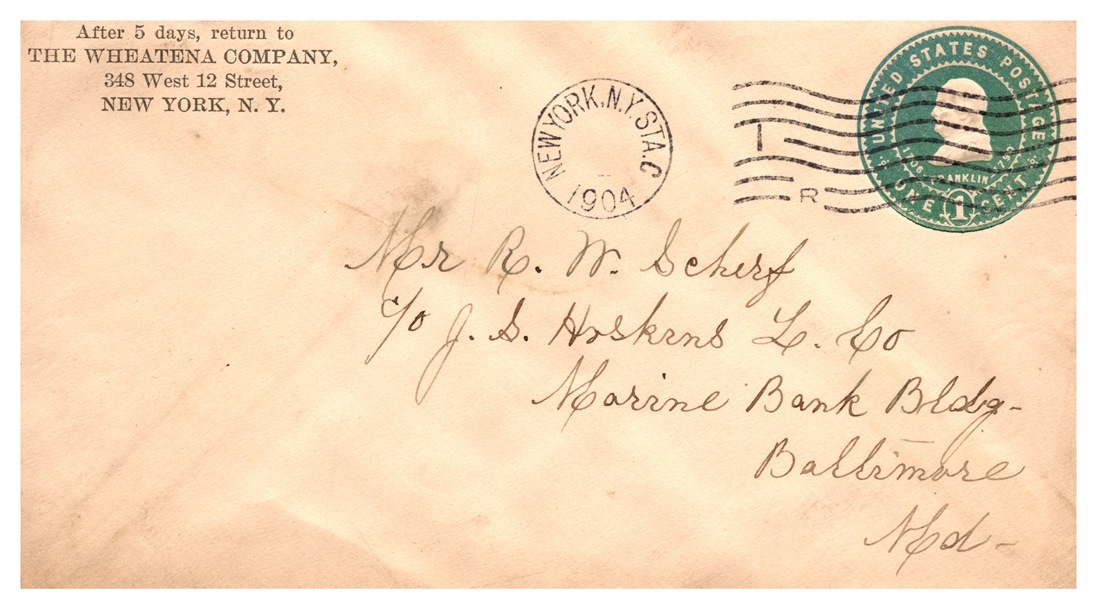 After 5 days, return to
THE WHEATENA COMPANY,
348 West 12 Street,
NEW YORK, N. Y.
NEW YORK, N.Y. STA. C
1904
I
R
UNITED STATES POSTAGE
1706 FRANKLIN 1790
ONE 1 CENT
Mr R. W. Scherf
c/o J. S. Hoskins L. Co
Marine Bank Bldg-
Baltimore
Md-